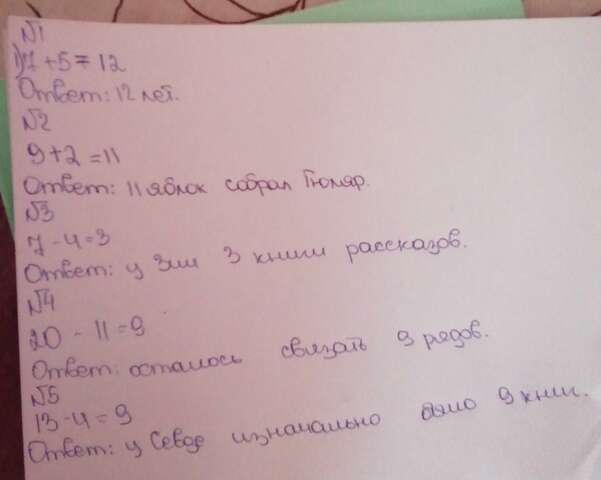 №1
1) 7+5=12
Ответ: 12 лет.
№2
9+2=11
Ответ: 11 яблок собрал Гюляр.
№3
7-4=3
Ответ: у Зии 3 книги рассказов.
№4
20-11=9
Ответ: осталось связать 9 рядов.
№5
13-4=9
Ответ: у Севде изначально было 9 книг.